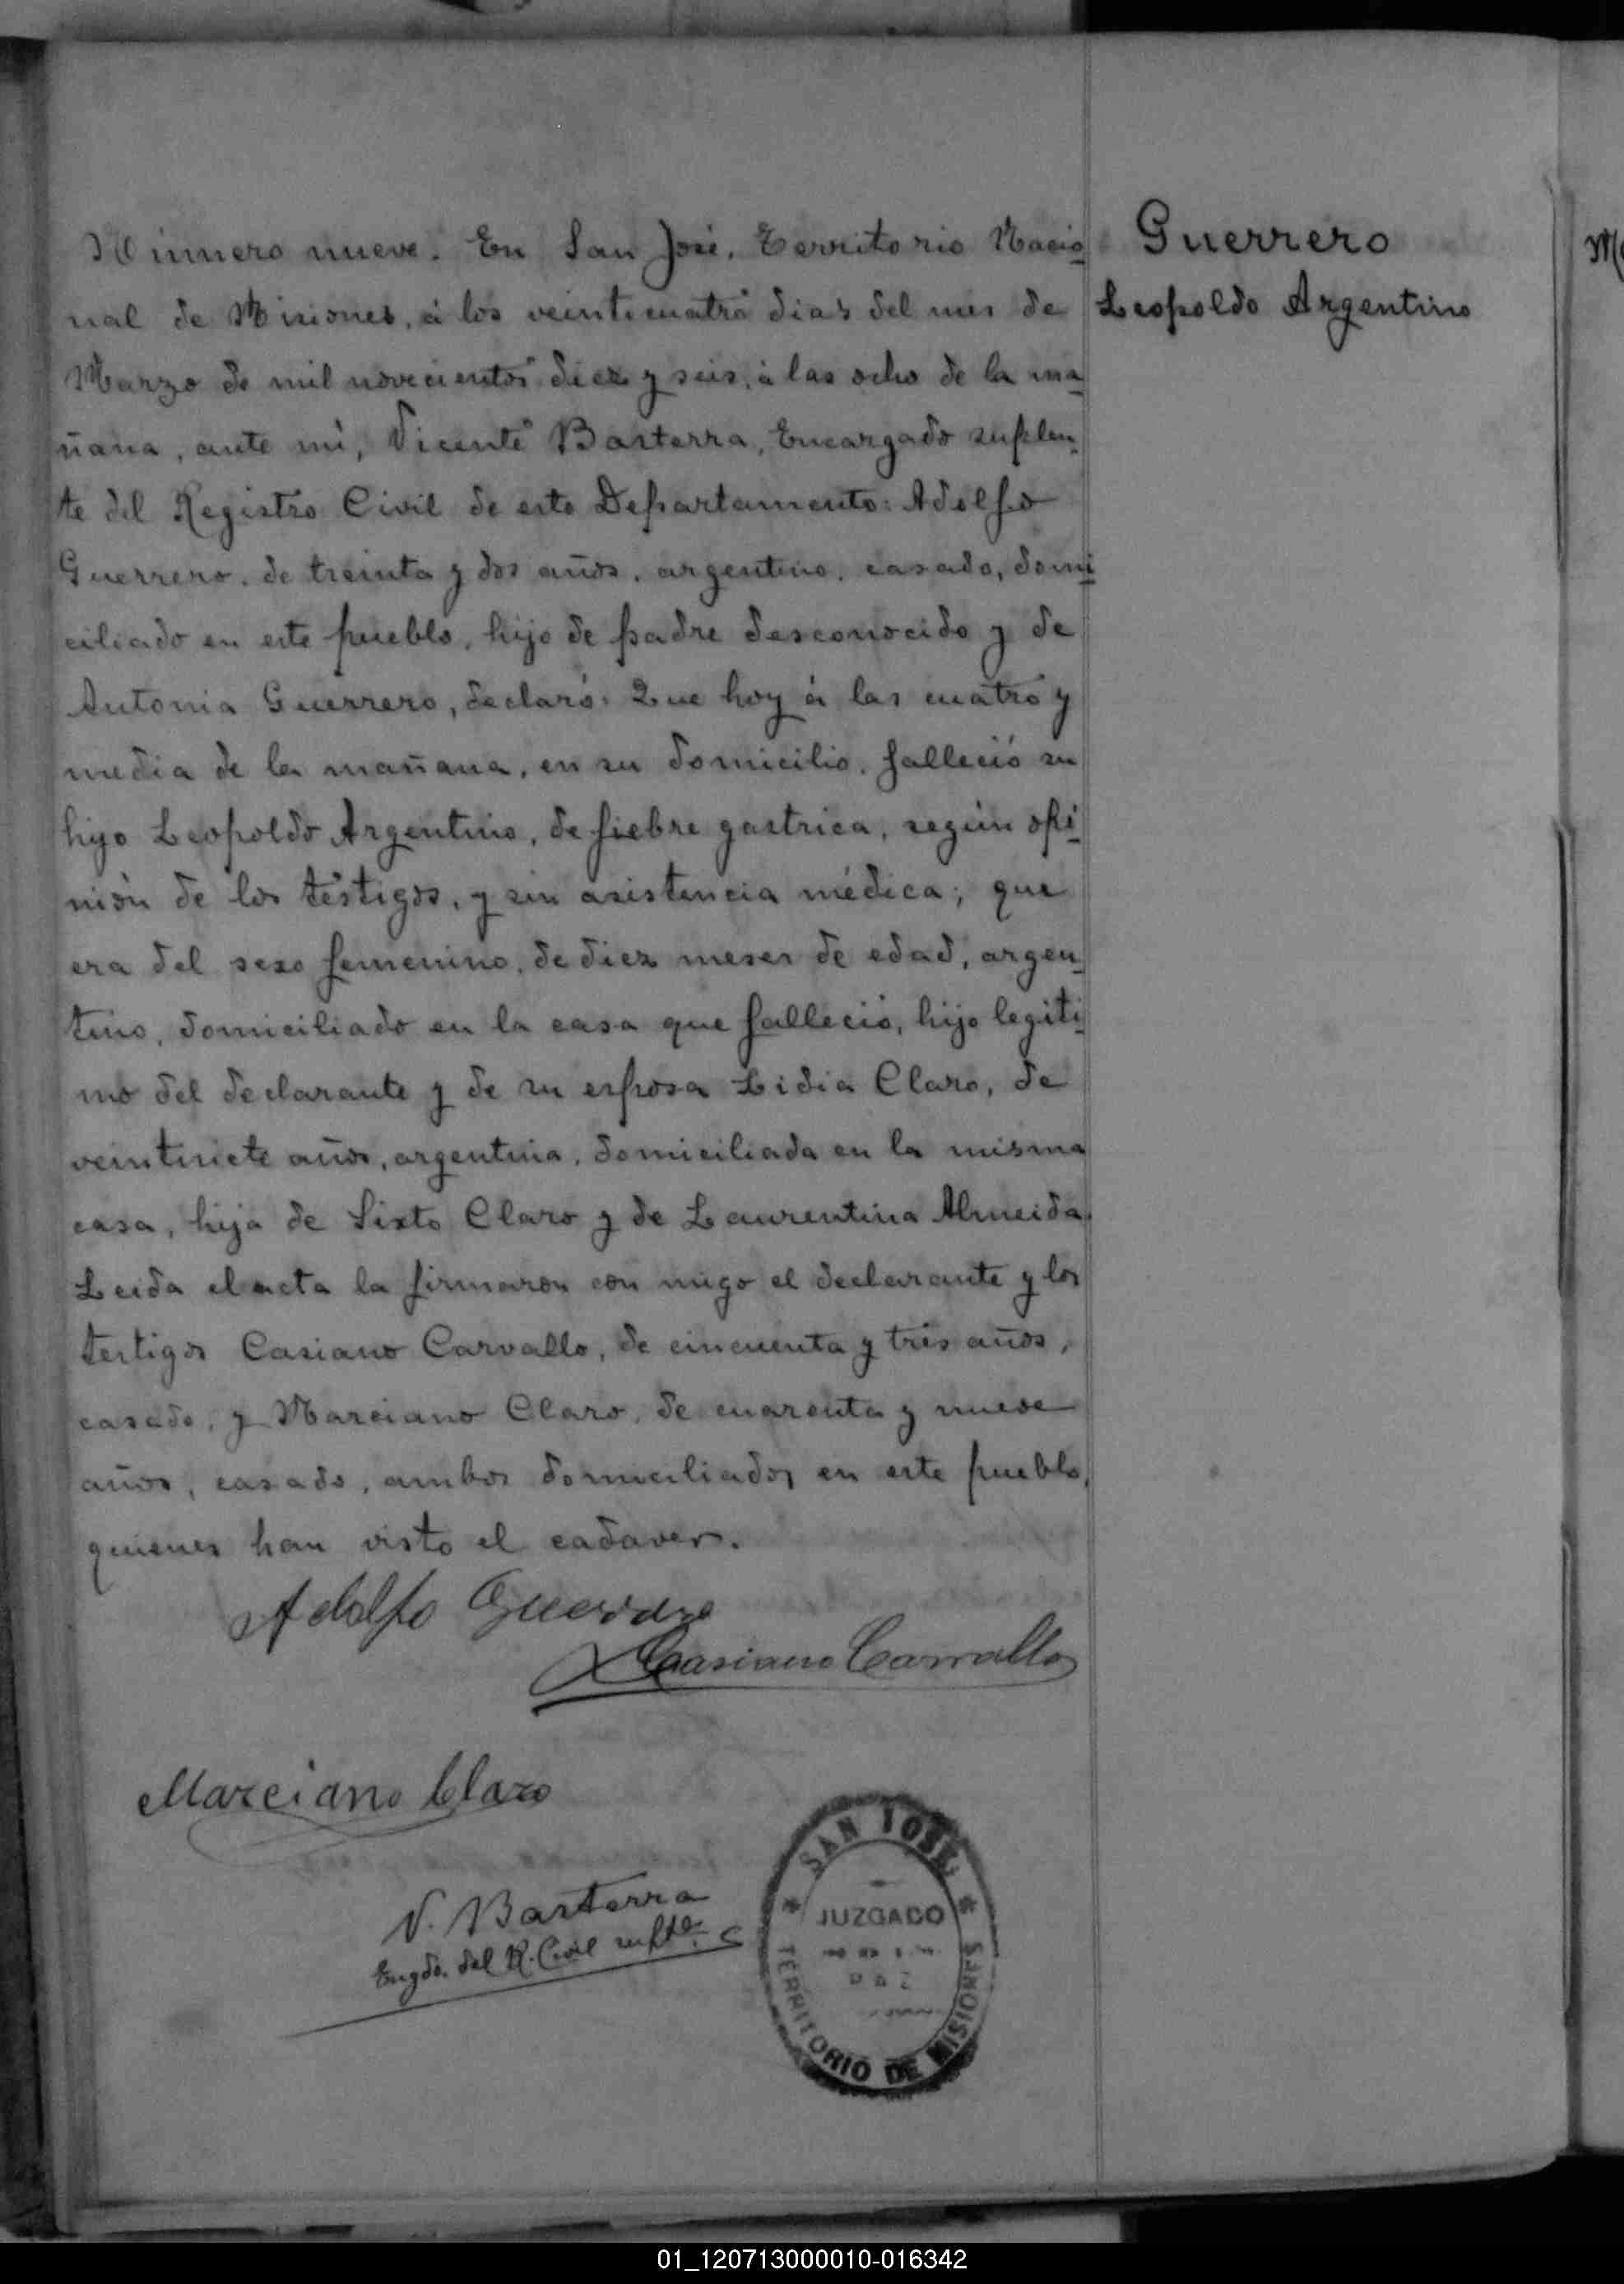 Número nueve. En San José, Territorio Nacio
nal de Misiones, á los veinticuatro dias del mes de
Marzo de mil novecientos diez y seis, á las ocho de la ma
ñana, ante mí, Vicente Basterra, Encargado suplen
te del Registro Civil de este Departamento: Adolfo
Guerrero, de treinta y dos años, argentino, casado, domi
ciliado en este pueblo, hijo de padre desconocido y de
Antonia Guerrero, declaró: Que hoy á las cuatro y
media de la mañana, en su domicilio, falleció su
hijo Leopoldo Argentino, de fiebre gastrica, según opi
nión de los testigos, y sin asistencia médica; que
era del sexo femenino, de diez meses de edad, argen
tino, domiciliado en la casa que falleció, hijo legiti
mo del declarante y de su esposa Lidia Claro, de
veintisiete años, argentina, domiciliada en la misma
casa, hija de Sixto Claro y de Laurentina Almeida.
Leida el acta la firmaron con migo el declarante y los
testigos Casiano Carvallo, de cincuenta y tres años,
casado, y Marciano Claro, de cuarenta y nueve
años, casado, ambos domiciliados en este pueblo,
quienes han visto el cadaver.
Adolfo Guerrero
Casiano Carvallo
Marciano Claro
V. Basterra
Engdo. del R. Civil suplte.
Guerrero
Leopoldo Argentino
SAN JOSE
JUZGADO
PAZ
TERRITORIO DE MISIONES
01_120713000010-016342